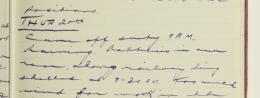 positions.
THUR 20TH
Came off duty 9 A.M.
heavies, batteries in our
rear, along railway being
shelled at 9-30 AM.
wind for